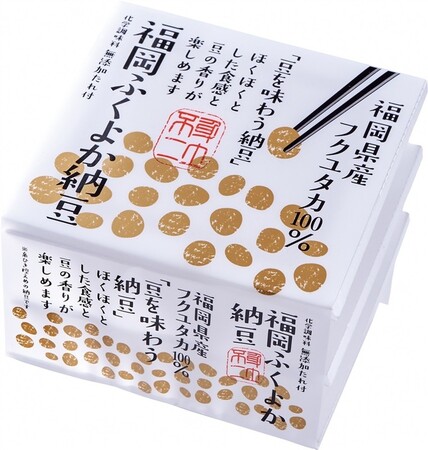 福岡県産
フクユタカ100%
「豆を味わう納豆」
ほくほくと
した食感と
豆の香りが
楽しめます
福岡ふくよか納豆
化学調味料 無添加たれ付
化学調味料 無添加たれ付
福岡ふくよか
納豆
福岡県産
フクユタカ100%
「豆を味わう
納豆」
ほくほくと
した食感と
豆の香りが
楽しめます